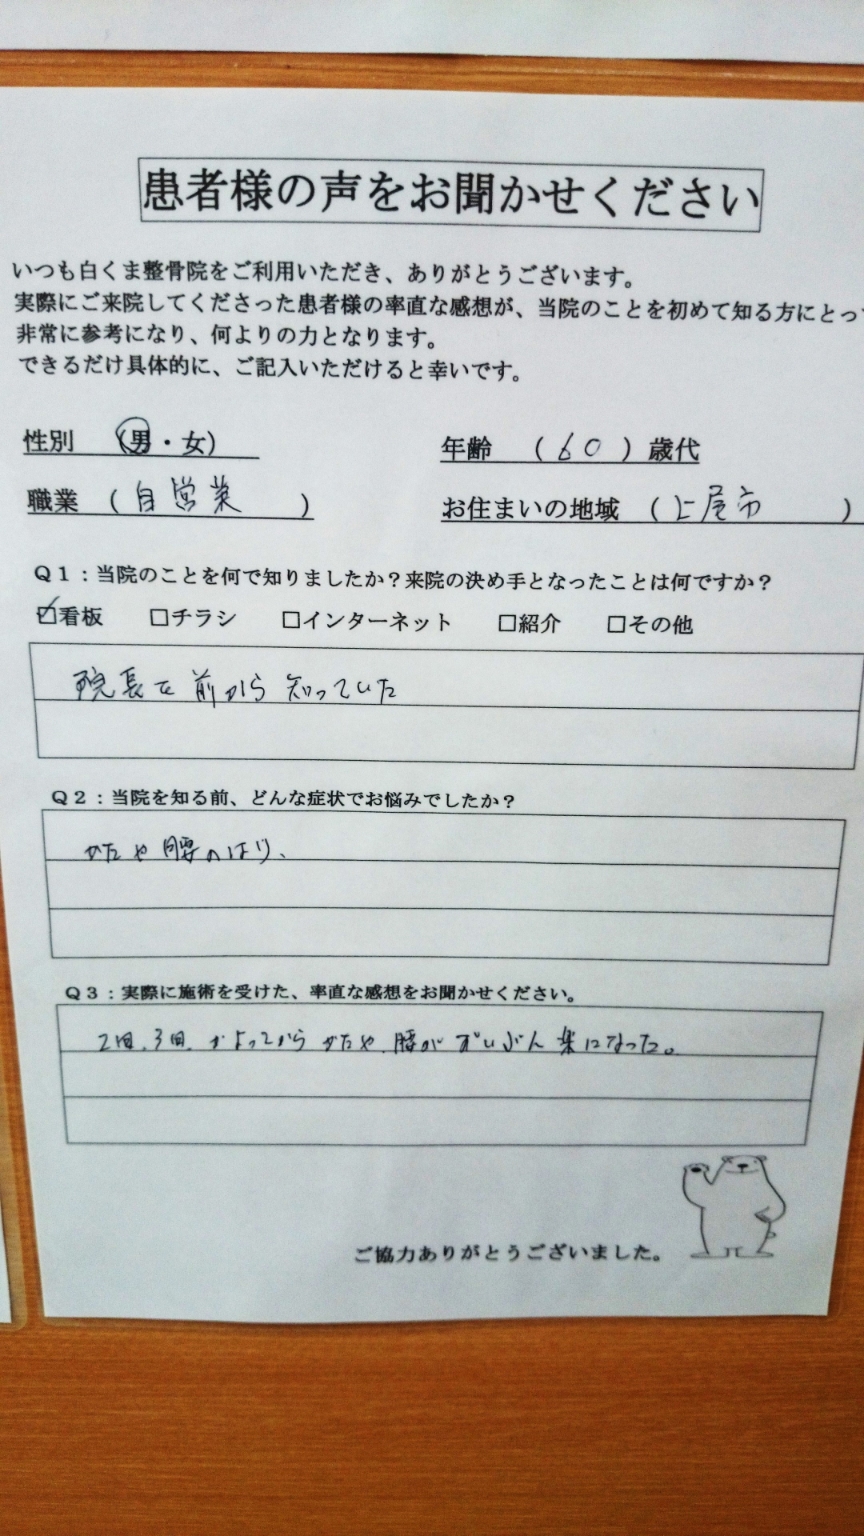 患者様の声をお聞かせください
いつも白くま整骨院をご利用いただき、ありがとうございます。
実際にご来院してくださった患者様の率直な感想が、当院のことを初めて知る方にとって
非常に参考になり、何よりの力となります。
できるだけ具体的に、ご記入いただけると幸いです。
性別 (男・女) 年齢 (60) 歳代
職業 (自営業) お住まいの地域 (上尾市)
Q1:当院のことを何で知りましたか?来院の決め手となったことは何ですか?
☑看板 □チラシ □インターネット □紹介 □その他
院長を前から知っていた
Q2:当院を知る前、どんな症状でお悩みでしたか?
かたや腰のはり、
Q3:実際に施術を受けた、率直な感想をお聞かせください。
2回、3回、かよってから かたや、腰が ずいぶん 楽になった。
ご協力ありがとうございました。